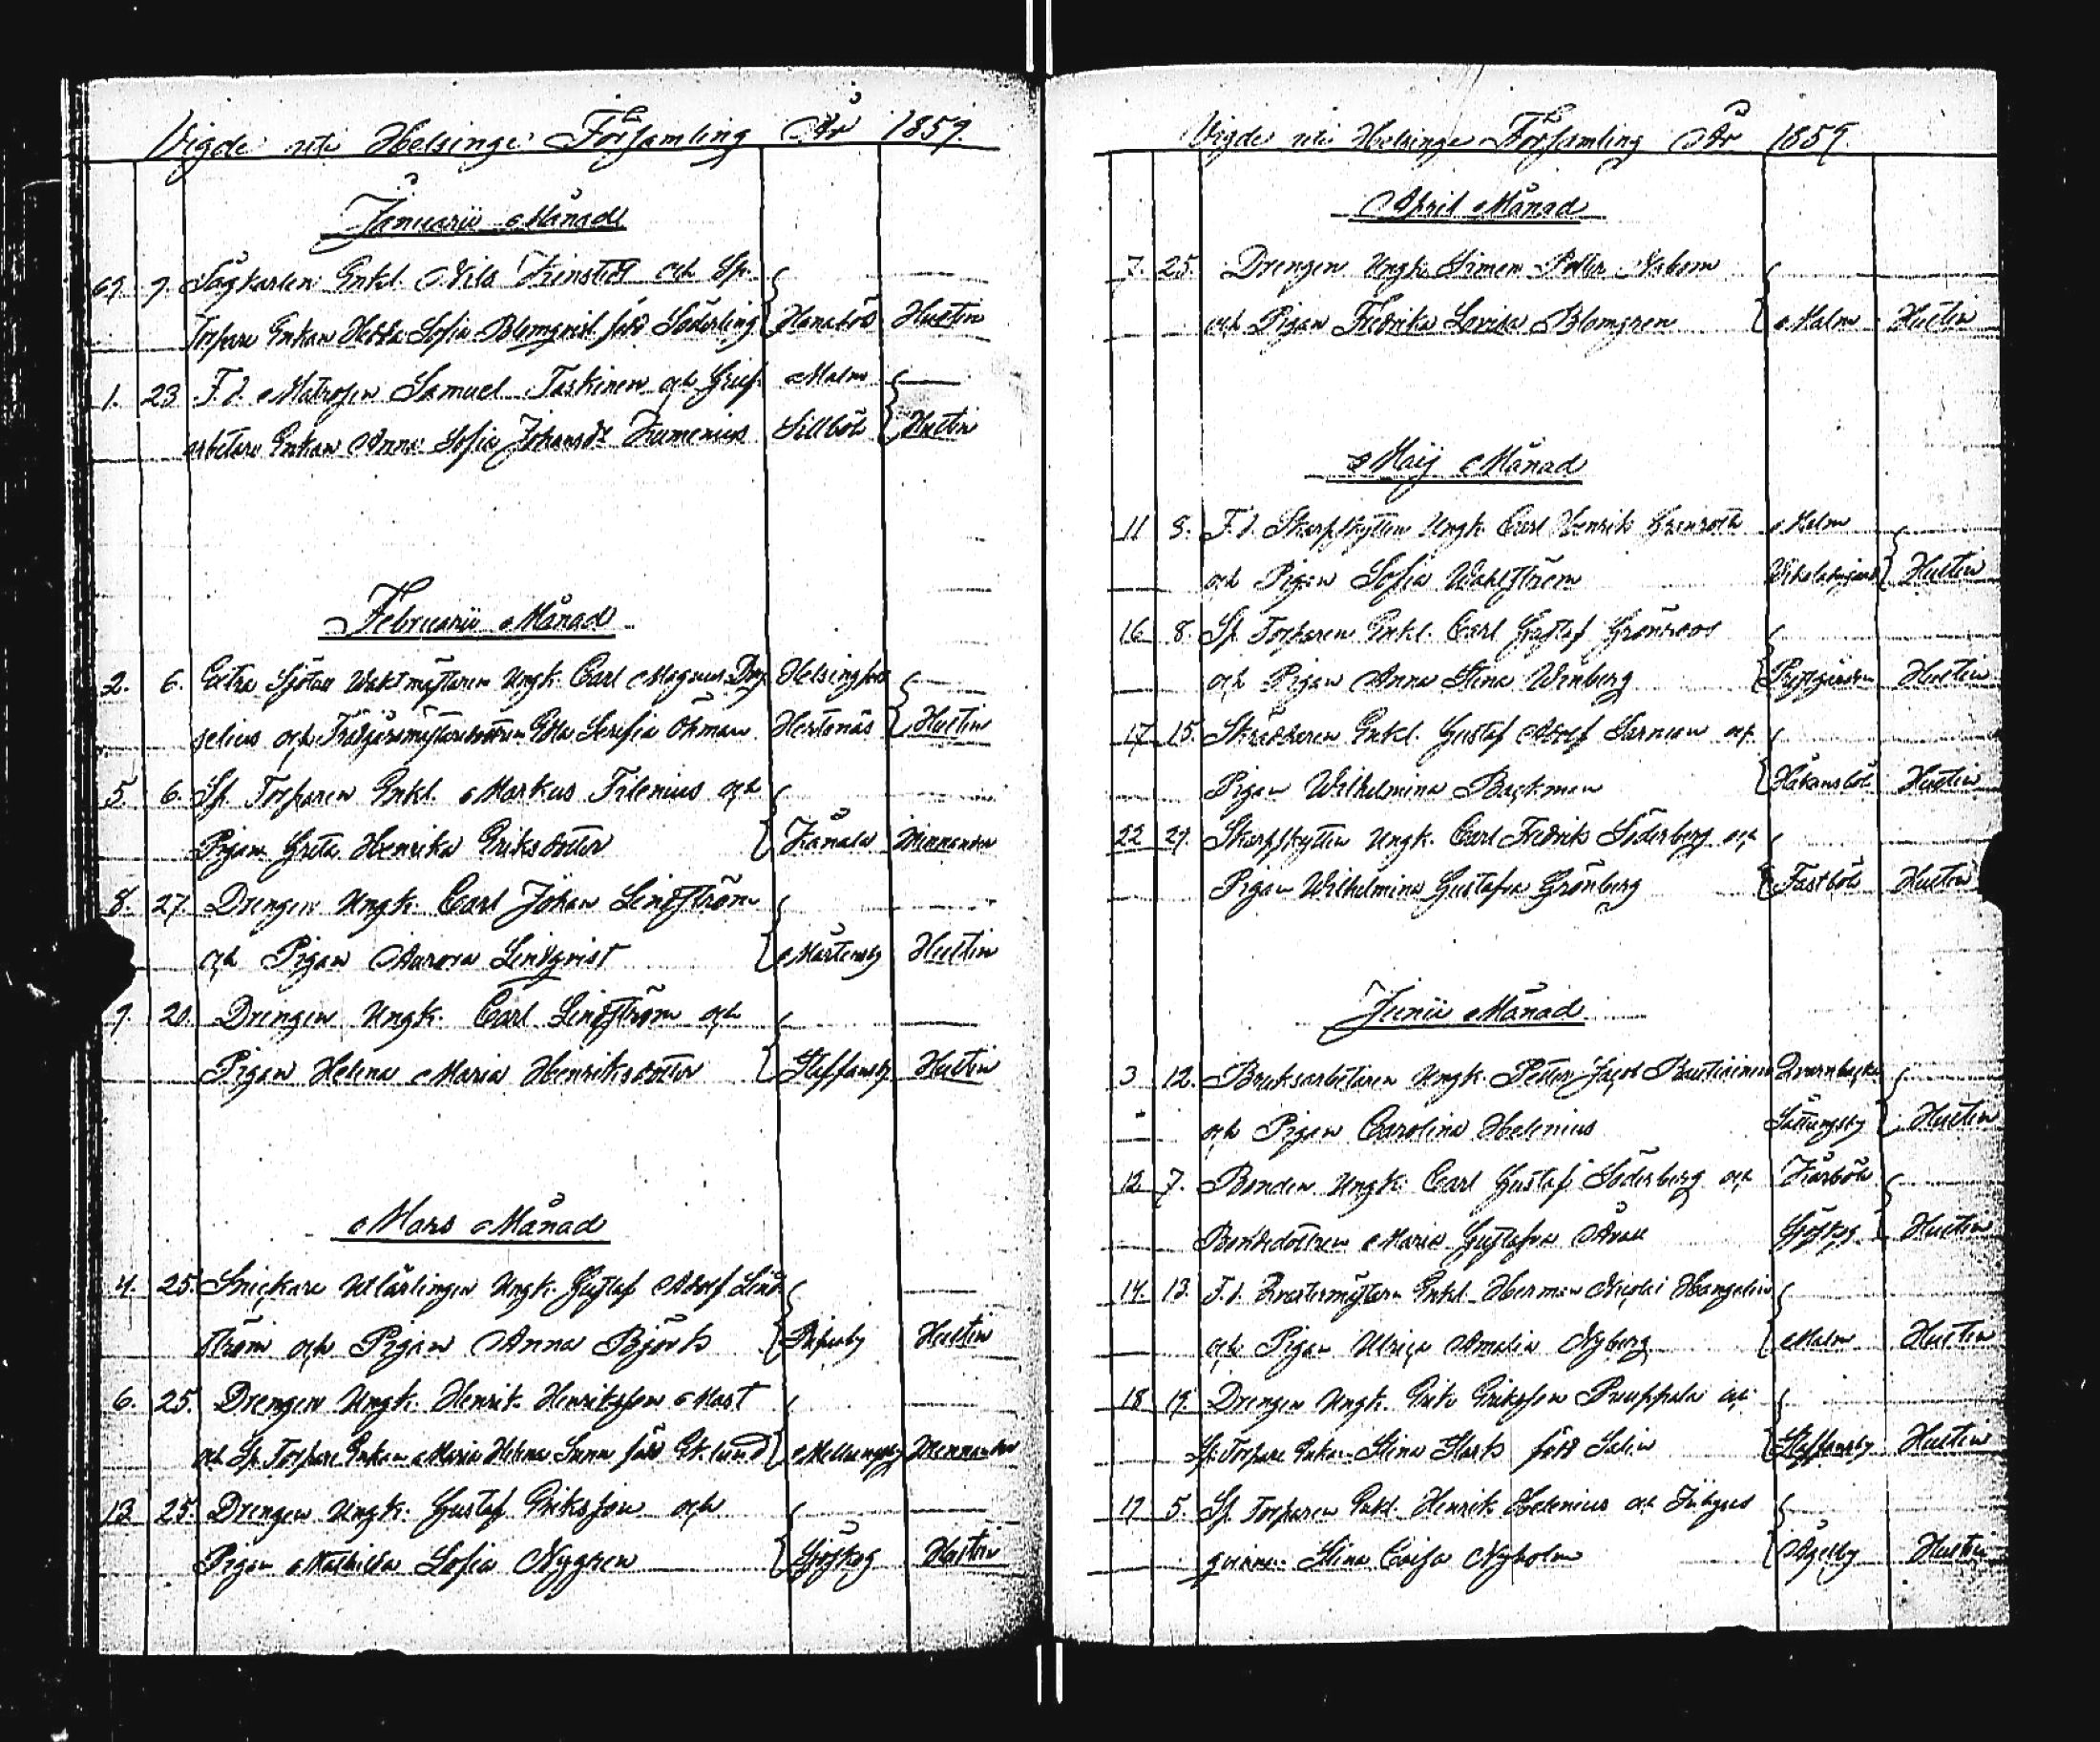 Vigde uti Helsinge Församling År 1859.
Januarii Månad
69. 9. Sågkarlen Enkl. Nils Kinstedt och Sp.
Torpare Enkan Hedda Sofia Blomqvist född Söderling Hanaböle Hustin
1. 23 F.d. Matrosen Samuel Taskinen och Grufs Malm
arbetare Enkan Anna Sofia Johansdr Kumenius Sillböle Hustin
Februarii Månad
2. 6. Extra Sjötull Waktmästaren Ungk. Carl Magnus Helsingfors
selius och Trädgårdsmästaredottren Edla Serafia Öhman Hertonäs Hustin
5. 6. Sp. Torparen Enkl. Markus Filenius och
Pigan Greta Henrika Eriksdotter Kånala Winnander
8. 27 Drengen Ungk. Carl Johan Lindström
och Pigan Aurora Lindqvist Mårtensby Hustin
9. 20. Drengen Ungk. Carl Lindström och
Pigan Helena Maria Henriksdotter Staffansby Hustin
Mars Månad
4. 25. Snickare Utlärlingen Ungk. Gustaf Adolf Lind
ström och Pigan Anna Björk Hustin
6. 25. Drengen Ungk. Henrik Henriksson Mast
och Sp. Torpare Enkan Maria Helena Sunn född Eklund Mellungsby Winnander
13 25. Drengen Ungk. Gustaf Eriksson och
Pigan Mathilda Sofia Nygren Sjöskog Hustin
Vigde uti Helsinge Församling År 1859.
April Månad
7. 25. Drengen Ungk. Simon Petter
och Pigan Fredrika Lovisa Blomgren Malm Hustin
Maij Månad
11 8. F.d. Skarpskytten Ungk. Carl Henrik Grenroth Malm
och Pigan Sofia Wahlström Hustin
16 8. Sp. Torparen Enkl. Carl Gustaf Grönroos
och Pigan Anna Stina Winberg Prestgården Hustin
17 15. Skräddaren Enkl. Gustaf Adolf Sarnion och
Pigan Wilhelmina Backman Håkansböle Hustin
22 29. Skarpskytten Ungk. Carl Fredrik Söderberg och
Pigan Wilhelmina Gustafva Grönberg Fastböle Hustin
Junii Månad
3 12. Bruksarbetaren Ungk. Petter Jacob Rautiainen Qvarnbacka
och Pigan Carolina Helenius Sottungsby Hustin
12 7. Bonden Ungk. Carl Gustaf Söderberg och Kårböle
Bondedottren Maria Gustafva Sjöskog Hustin
14 13. F.d. Qvartermästarn Enkl. Herman Nicolai Hangelin
och Pigan Ulrica Amalia Nyberg Malm Hustin
18 19. Drengen Ungk. Erik Eriksson Pruuppala och
Sp. Torpare Enkan Stina Stark född Salin Staffansby Hustin
17 5. Sp. Torparen Enkl. Henrik Helenius och Inhyses
qvinnan Stina Caisa Nyholm Åggelby Hustin